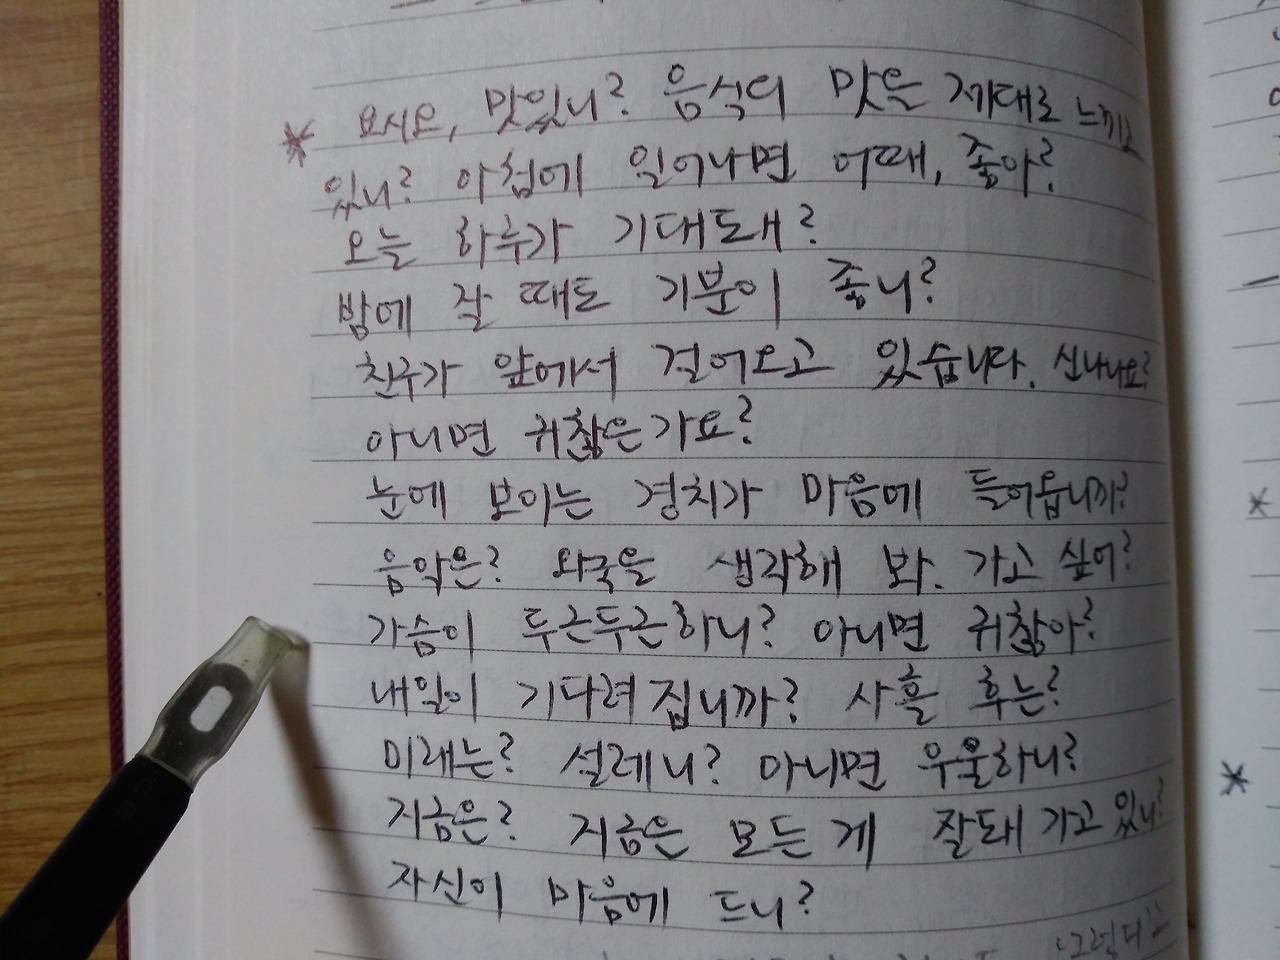 * 요사요, 맛있니? 음식의 맛을 제대로 느끼고
있니? 아침에 일어나면 어때, 좋아?
오늘 하루가 기대돼?
밤에 잘 때도 기분이 좋니?
친구가 앞에서 걸어오고 있습니다. 신나나요?
아니면 귀찮은가요?
눈에 보이는 경치가 마음에 들어옵니까?
음악은? 외국을 생각해 봐. 가고 싶어?
가슴이 두근두근하니? 아니면 귀찮아?
내일이 기다려집니까? 사흘 후는?
미래는? 설레니? 아니면 우울하니?
지금은? 지금은 모든 게 잘돼 가고 있니?
자신이 마음에 드니?
*
*